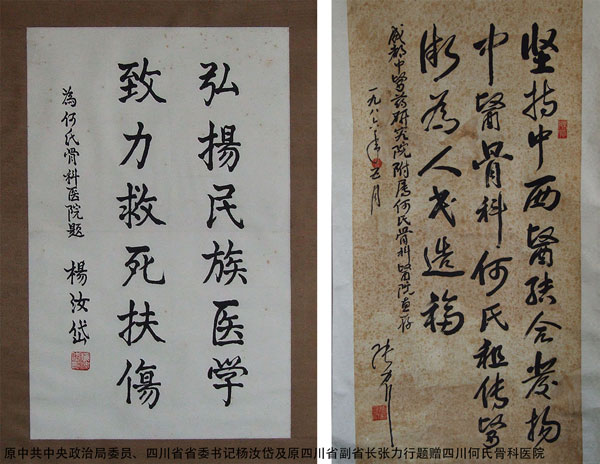 弘揚民族医学
致力救死扶傷
為何氏骨科医院题
楊汝岱
坚持中西醫結合发扬
中醫骨科何氏祖传醫
術為人民造福
成都中醫药研究院附属何氏骨科醫院惠存
一九八 年五月
张力行
原中共中央政治局委员、四川省省委书记杨汝岱及原四川省副省长张力行题赠四川何氏骨科医院